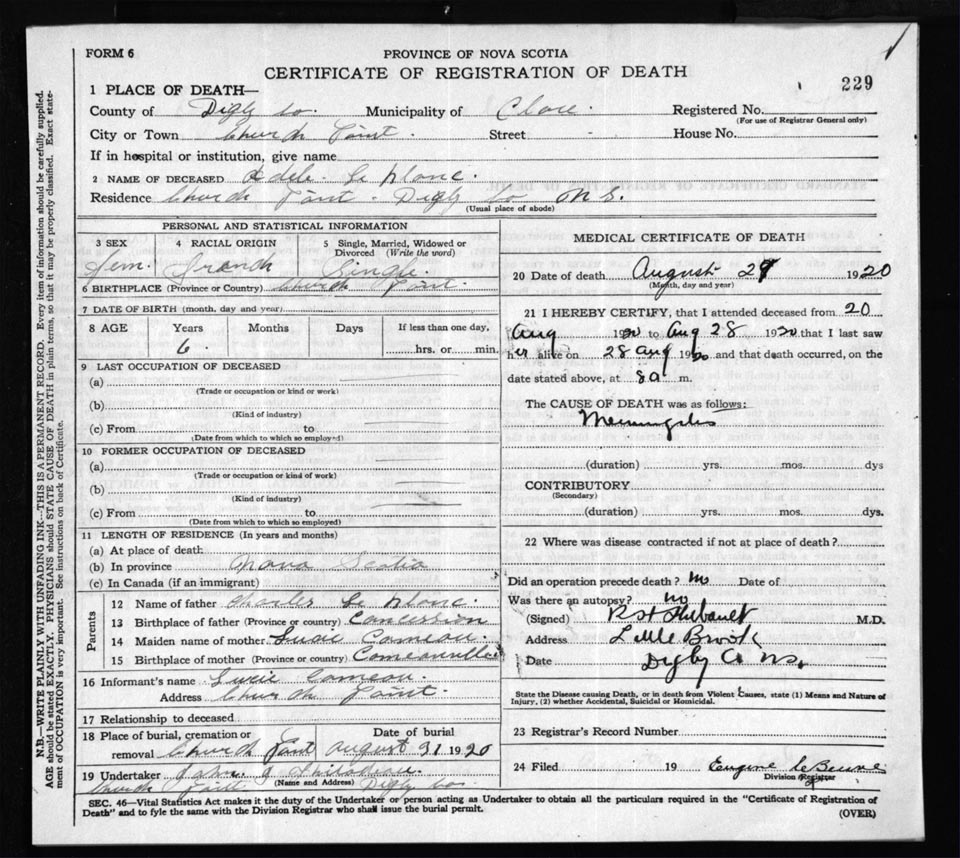 FORM 6
PROVINCE OF NOVA SCOTIA
CERTIFICATE OF REGISTRATION OF DEATH
229
1 PLACE OF DEATH—
County of Digby Co. Municipality of Clare. Registered No.
(For use of Registrar General only)
City or Town Church Point. Street - House No.
If in hospital or institution, give name
2 NAME OF DECEASED Adele Le Blanc.
Residence Church Point. Digby Co N S.
(Usual place of abode)
PERSONAL AND STATISTICAL INFORMATION
3 SEX 4 RACIAL ORIGIN 5 Single, Married, Widowed or Divorced (Write the word)
Fem. French Single.
6 BIRTHPLACE (Province or Country) Church Point.
7 DATE OF BIRTH (month, day and year)
8 AGE Years Months Days If less than one day,
6. hrs. or min.
9 LAST OCCUPATION OF DECEASED
(a)
(Trade or occupation or kind or work)
(b)
(Kind of industry)
(c) From to
(Date from which to which so employed)
10 FORMER OCCUPATION OF DECEASED
(a)
(Trade or occupation or kind of work)
(b)
(Kind of industry)
(c) From to
(Date from which to which so employed)
11 LENGTH OF RESIDENCE (In years and months)
(a) At place of death
(b) In province Nova Scotia
(c) In Canada (if an immigrant)
Parents
12 Name of father Charles Le Blanc.
13 Birthplace of father (Province or country) Concession
14 Maiden name of mother Susie Comeau.
15 Birthplace of mother (Province or country) Comeauville
16 Informant's name Susie Comeau.
Address Church Point.
17 Relationship to deceased
18 Place of burial, cremation or removal Church Point Date of burial August 31 1920
19 Undertaker John
(Name and Address)
Church Point Digby Co.
MEDICAL CERTIFICATE OF DEATH
20 Date of death August 29 1920
(Month, day and year)
21 I HEREBY CERTIFY, that I attended deceased from 20
Aug 1920 to Aug 28 1920 that I last saw
her alive on 28 Aug 1920 and that death occurred, on the
date stated above, at 8 a m.
The CAUSE OF DEATH was as follows:
Meningitis
(duration) yrs. mos. dys
CONTRIBUTORY
(Secondary)
(duration) yrs. mos. dys.
22 Where was disease contracted if not at place of death?
Did an operation precede death? no Date of
Was there an autopsy? no
(Signed) Thibault M.D.
Address Little Brook
Date Digby Co NS.
State the Disease causing Death, or in death from Violent Causes, state (1) Means and Nature of
Injury, (2) whether Accidental, Suicidal or Homicidal.
23 Registrar's Record Number
24 Filed 19 Eugene
Division Registrar
SEC. 46—Vital Statistics Act makes it the duty of the Undertaker or person acting as Undertaker to obtain all the particulars required in the "Certificate of Registration of
Death" and to fyle the same with the Division Registrar who shall issue the burial permit.
(OVER)
N.B.—WRITE PLAINLY WITH UNFADING INK—THIS IS A PERMANENT RECORD. Every item of information should be carefully supplied.
AGE should be stated EXACTLY. PHYSICIANS should STATE CAUSE OF DEATH in plain terms, so that it may be properly classified. Exact state-
ment of OCCUPATION is very important. See instructions on back of Certificate.